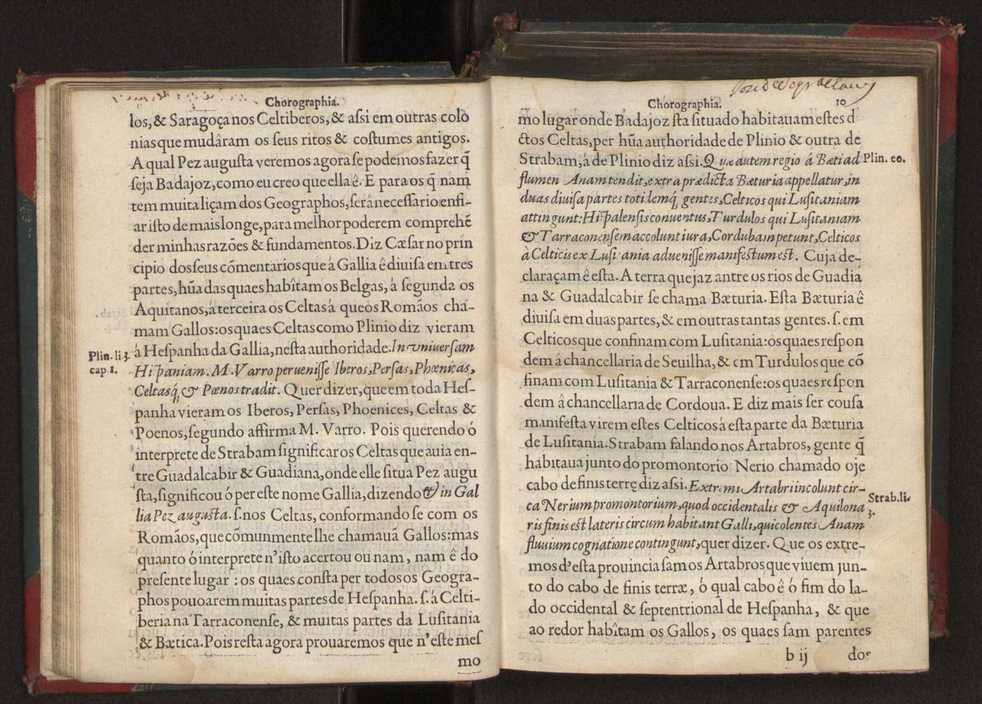 Chorographia.
los, & Saragoça nos Celtiberos, & aſsi em outras colõ
nias que mudâram os ſeus ritos & coſtumes antigos.
A qual Pez auguſta veremos agora ſe podemos fazer q̃
ſeja Badajoz, como eu creo que ella ê. E para os q̃ nam
tem muita liçam dos Geographos, ſerà neceſſario enfi-
ar iſto de mais longe, para melhor poderem comprehẽ
der minhas razões & fundamentos. Diz Cæſar no prin
cipio dos ſeus cõmentarios que á Gallia ê diuiſa em tres
partes, hũa das quaes habitam os Belgas, à ſegunda os
Aquitanos, à terceira os Celtas à que os Romãos cha-
mam Gallos: os quaes Celtas como Plinio diz vieram
à Heſpanha da Gallia, neſta authoridade. In vniuerſam
Plin. li 3.
cap 1.
Hiſpaniam. M. Varro perueniſſe Iberos, Perſas, Phœnicas,
Celtasq́ & Pœnos tradit. Quer dizer, que em toda Heſ-
panha vieram os Iberos, Perſas, Phoenices, Celtas &
Poenos, ſegundo affirma M. Varro. Pois querendo ó
interprete de Strabam ſignificar os Celtas que auia en-
tre Guadalcabir & Guadiana, onde elle ſitua Pez augu
ſta, ſignificou ó per eſte nome Gallia, dizendo & in Gal
lia Pez auguſta. ſ. nos Celtas, conformando ſe com os
Romãos, que cõmunmente lhe chamauã Gallos: mas
quanto ó interprete n'iſto acertou ou nam, nam ê do
preſente lugar : os quaes conſta per todos os Geogra-
phos pouoarem muitas partes de Heſpanha. ſ. á Celti-
beria na Tarraconenſe, & muitas partes da Luſitania
& Bætica. Pois reſta agora prouaremos que n'eſte meſ
mo
Chorographia. 10
mo lugar onde Badajoz ſta ſituado habitauam eſtes d
ctos Celtas, per hũa authoridade de Plinio & outra de
Strabam, à de Plinio diz aſsi. Quæ autem regio á Bæti ad
Plin. eo.
flumen Anam tendit, extra prædicta Bæturia appellatur, in
duas diuiſa partes totidemq́, gentes, Celticos qui Luſitaniam
attingunt: Hiſpalenſis conuentus, Turdulos qui Luſitaniam
& Tarraconenſem accolunt iura, Cordubam petunt, Celticos
á Celticis ex Luſitania adueniſſe manifeſtum eſt. Cuja de-
claraçam ê eſta. A terra que jaz antre os rios de Guadia
na & Guadalcabir ſe chama Bæturia. Eſta Bæturia ê
diuiſa em duas partes, & em outras tantas gentes. ſ. em
Celticos que confinam com Luſitania: os quaes reſpon
dem á chancellaria de Seuilha, & em Turdulos que cõ
finam com Luſitania & Tarraconenſe: os quaes reſpon
dem á chancellaria de Cordoua. E diz mais ſer couſa
manifeſta virem eſtes Celticos á eſta parte da Bæturia
de Luſitania. Strabam falando nos Artabros, gente q̃
habitaua junto do promontorio Nerio chamado oje
cabo de finis terrę diz aſsi. Extremi Artabri incolunt cir-
Strab. li.
3.
ca Nerium promontorium, quod occidentalis & Aquilona
ris finis eſt lateris circum habitant Galli, qui colentes Anam
fluuium cognatione contingunt, quer dizer. Que os extre-
mos d'eſta prouincia ſam os Artabros que viuem jun-
to do cabo de finis terræ, ó qual cabo ê ó fim do la-
do occidental & ſeptentrional de Heſpanha, & que
ao redor habîtam os Gallos, os quaes ſam parentes
b ij dos